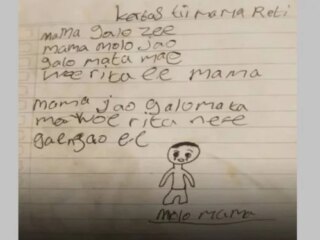 kertas tii mama Reti
mama galo zee
mama molo jao
galo mata mae
woe rita ee mama
mama jao galo mata
ma woe rita nere
gaengao ee
molo mama